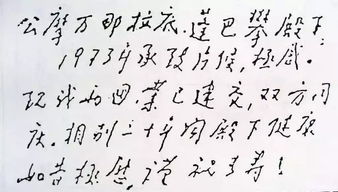 公摩万那拉底.蓬巴攀殿下:
1973年承蒙问候,极感。
现我两国.业已建交,双方同
庆.相别二十年闻殿下健康
如昔极慰,谨祝多寿!